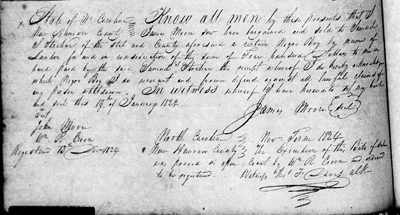 State of No Carolina } Know all men by these presents that I
New Hanover County } James Moore have bargained and sold to Samuel
J Fletcher of the State and County aforesaid a certain Negro Boy by name of
for and in consideration of the sum of Four hundred Dollars to me in
hand paid by the said Samuel Fletcher the receipt whereof I do hereby acknowledge
which Negro Boy I do warrant and forever defend against all lawful claims of
any person whatsoever. In witness whereof I have hereunto set my hand
and seal this 19th of January 1824
Test
James Moore seal
John Moore
Wm
Registered 1824
North Carolina } Nov Term 1824
New Hanover County } The Execution of this Bill of Sale
was proved in open Court by Wm and ordered
to be registered. Test F Davis Clk